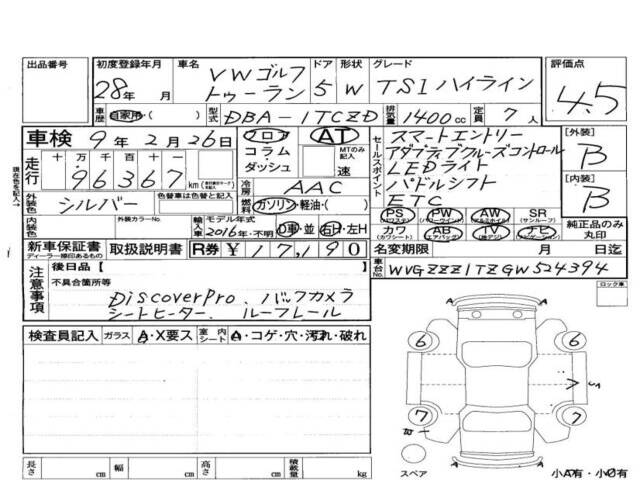 出品番号 初度登録年月 車名 ドア 形状 グレード 評価点
28年 月 VWゴルフトゥーラン 5 W TSIハイライン 4.5
車歴 自家用・( ) 型式 DBA-1TCZD 排気量 1400cc 定員 7人
車検 9年2月26日 フロア コラム・ダッシュ AT MTのみ記入 速
セールスポイント
スマートエントリー
アダプティブクルーズコントロール
LEDライト
パドルシフト
ETC
[外装] B
[内装] B
走行 十 万 千 百 十 96367 km
冷房 AAC
外装色 シルバー 色替車は色替と記入 燃料 ガソリン・軽油・( )
PS PW AW SR
カワ AB TV ナビ
純正品のみ丸印
内装色 外装カラーNo. 輸入車記入 モデル年式 2016年・不明 D車・並 右H・左H
新車保証書 ディーラー捺印あるもの 取扱説明書 R券 ¥17,190 名変期限 月 日迄
車台No. WVGZZZ1TZGW524394
現在色を記入→
注意事項 後日品[ ]
不具合箇所等
DiscoverPro、バックカメラ
シートヒーター、ルーフレール
ロック車
検査員記入 ガラス A・X要ス 室内シート A・コゲ・穴・汚れ・破れ
6 6
7 7
長さ cm 幅 cm 高さ cm 積載量 kg
スペア 小A有・小U有